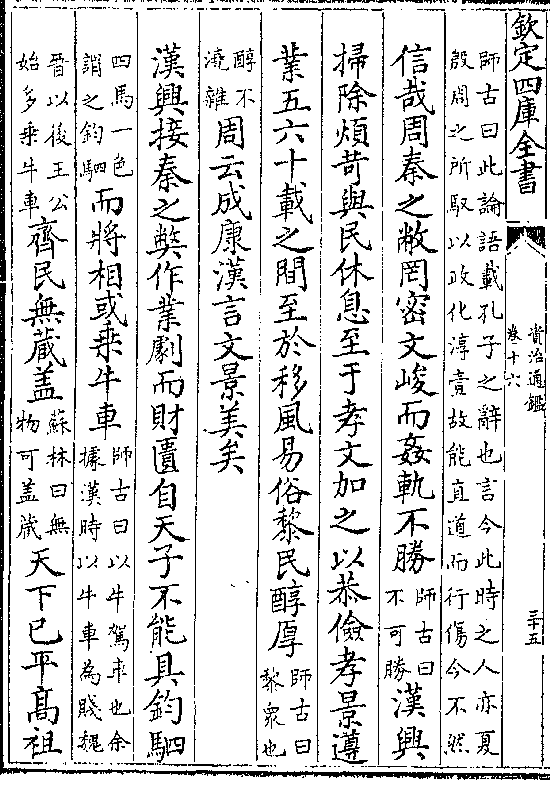 欽定四庫全書
資治通鑑
卷十六
三十五
師古曰此論語載孔子之辭也言今此時之人亦夏
殷周之所馭以政化淳壹故能直道而行傷今不然
信哉周秦之敝罔密文峻而姦軌不勝師古曰不可勝漢興
掃除煩苛與民休息至于孝文加之以恭儉孝景遵
業五六十載之間至於移風易俗黎民醇厚師古曰黎衆也
醇不澆雜周云成康漢言文景美矣
漢興接秦之弊作業劇而財匱自天子不能具鈞駟
四馬一色謂之鈞駟而將相或乘牛車師古曰以牛駕車也余據漢時以牛車為賤魏
晉以後王公始多乘牛車齊民無藏盖蘇林曰無物可盖藏天下已平高祖